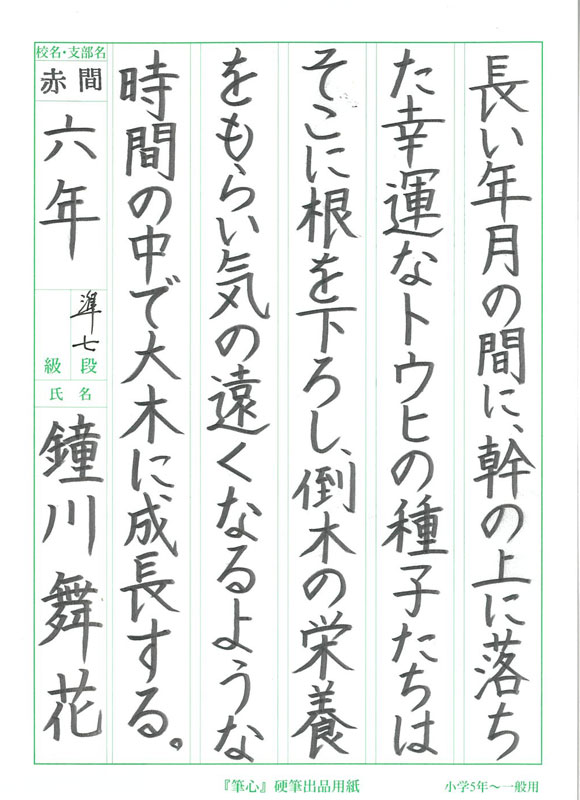 長い年月の間に、幹の上に落ち
た幸運なトウヒの種子たちは
そこに根を下ろし、倒木の栄養
をもらい気の遠くなるような
時間の中で大木に成長する。
校名・支部名
赤間
六年
準七
級段
氏名
鐘川舞花
『筆心』硬筆出品用紙
小学5年〜一般用